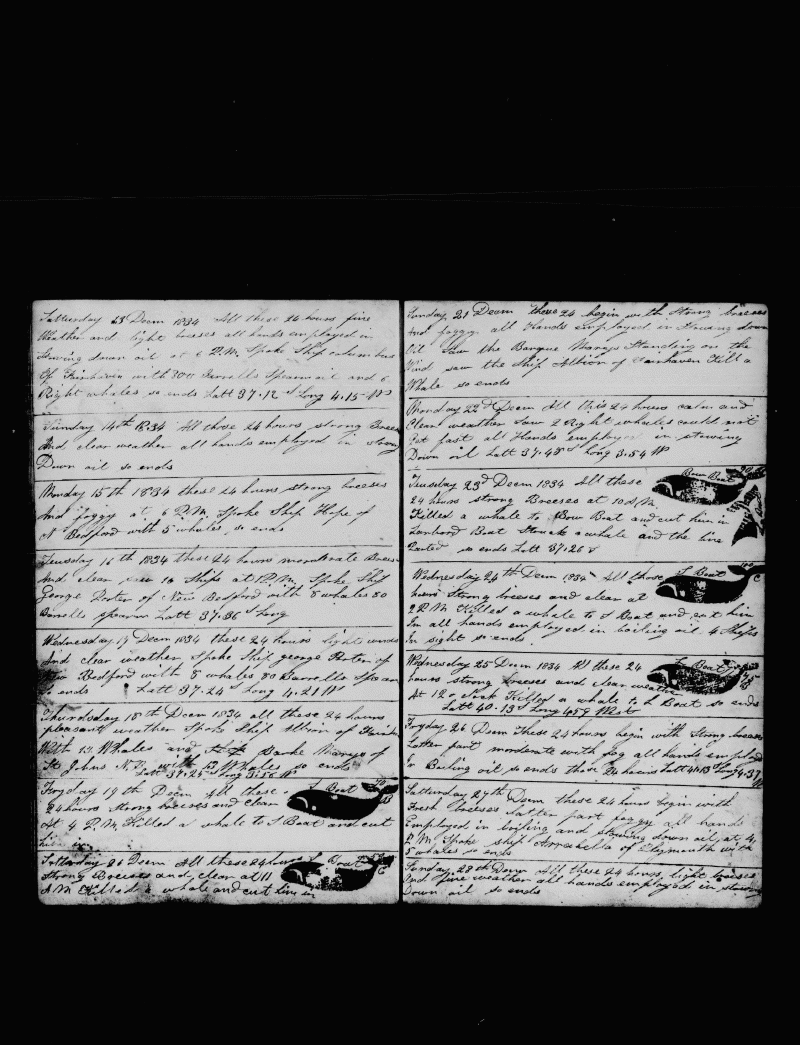 Satturday 13 Decm 1834 All these 24 hours fine
Weather and light breses all hands employed in
Stowing down oil at 6 P.M. Spoke Ship columbus
Of Fairhaven with 300 Barrells Spearm oil and 6
Right whales so ends Latt 37.12 S Long 4.15 W
Sunday 14th 1834 All those 24 hours strong Breses
And clear weather all hands employed in stowing
Down oil so ends
Monday 15th 1834 these 24 hours strong breeses
And foggy at 6 P.M. Spoke Ship Hope of
N Bedford with 5 whales so ends
Teusday 16th 1834 these 24 hours morderate Breses
And clear saw 10 Ships at P.M. Spoke Ship
George Porter of New Bedford with 8 whales 80
Barrells spearm Latt 37.36 S Long
Wednesday 17 Decm 1834 these 24 hours light winds
And clear weather Spoke Ship george Porter of
New Bedford with 8 whales 80 Barrells Spearm
So ends Latt 37.24 S Long 4.21 W
Thursdsday 18th Decm 1834 all these 24 hours
pleasant weather Spoke Ship Albion of Fairhaven
With 12 Whales and Barke Marys of
St Johns N.B. with 13 Whales so ends
Latt 37.25 Long 3.56 W
Frogday 19th Decm All these
24 hours strong breeses and clear
At 4 P.M. Killed a whale to S Boat and cut
him in
S Boat
70
Satturday 20 Decm All these 24 hours
Strong Breeses and clear at 11
A.M. Killed a whale and cut him in
Boat
Sunday 21 Decem these 24 begin with Strong breeses
And foggy all Hands Employed in Stowing down
Oil Saw the Barque Marys Standing on the
Wind saw the Ship Albion of Fairhaven Kill a
Whale so ends
Monday 22d Decem All this 24 hours calm and
Clear weather Saw 2 Right whales could not
Get fast all Hands employed in stowing
Down oil Latt 37.48 S Long 3.54 W
Teusday 23d Decem 1834 All these
24 hours strong Breeses at 10 A.M.
Killed a whale to Bow Boat and cut him in
Larbord Boat Struck a whale and the line
Parted so ends Latt 37.26 S
Bow Boat
Wednesday 24th Decm 1834 All those
hours Strong breeses and clear at
2 P.M. Killed a whale to S Boat and cut him
In all hands employed in boiling oil 4 Ships
In sight so ends
S Boat
Wednesday 25 Decem 1834 All these 24
hours strong breeses and clear weather
At 12 o Clock Killed a whale to L Boat so ends
Latt 40.13 S Long 4.59 West
L Boat
75
Frogday 26 Decm These 24 hours begin with Strong breeses
Latter part morderate with fog all hands employed
In Boiling oil so ends those 24 hours Latt 41.13 S Long 4.37 W
Satturday 27th Decm these 24 hours begin with
Fresh breeses latter part foggy all hands
Employed in boiling and stowing down oil at 4
P.M. Spoke ship Arrabella of Plymouth with
5 whales so ends
Sunday 28th Decm All these 24 hours light breeses
And fine weather all hands employed in stowing
Down oil so ends